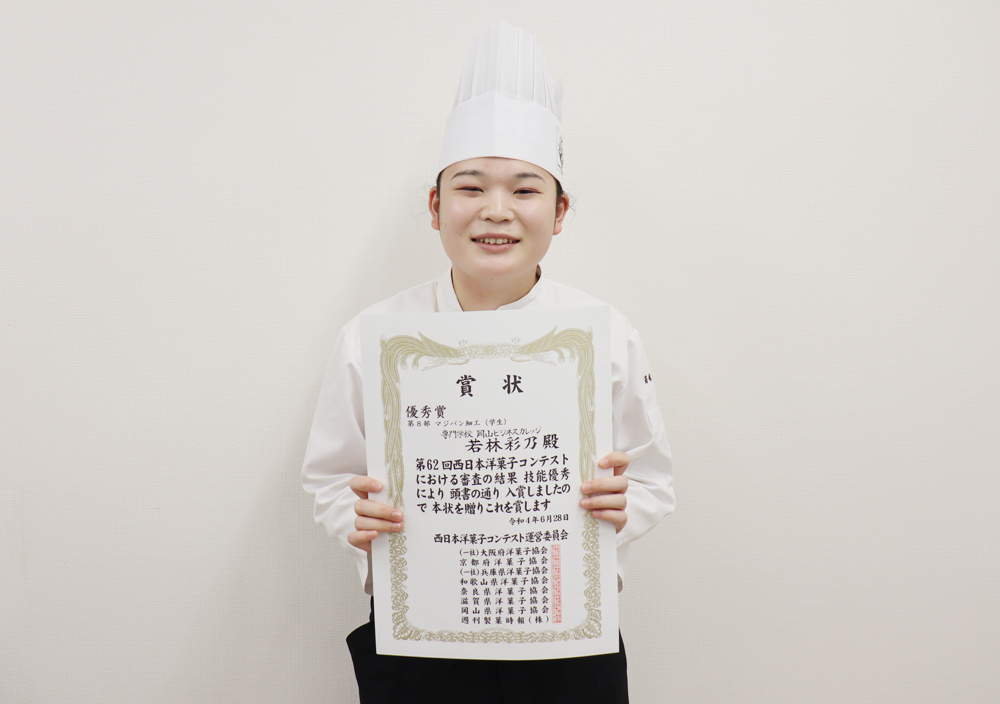 賞状
優秀賞
第8部 マジパン細工（学生）
専門学校 岡山ビジネスカレッジ
若林彩乃殿
第62回西日本洋菓子コンテスト
における審査の結果 技能優秀
により 頭書の通り 入賞しましたの
で 本状を贈りこれを賞します
令和4年6月28日
西日本洋菓子コンテスト運営委員会
(一社)大阪府洋菓子協会
京都府洋菓子協会
(一社)兵庫県洋菓子協会
和歌山県洋菓子協会
奈良県洋菓子協会
滋賀県洋菓子協会
岡山県洋菓子協会
週刊製菓時報(株)